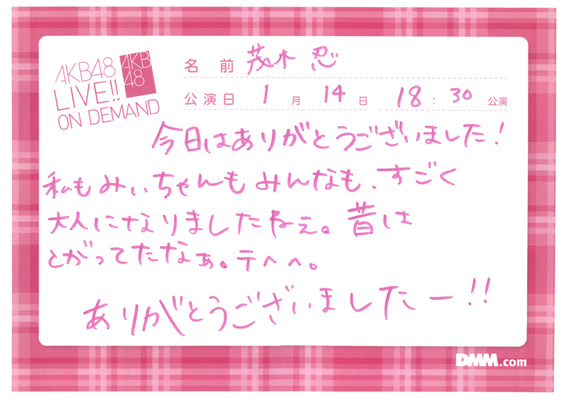 AKB48
LIVE!!
ON DEMAND
AKB
48
名前 茂木 忍
公演日 1月 14日 18:30 公演
今日はありがとうございました!
私もみぃちゃんもみんなも、すごく
大人になりましたねぇ。昔は
とがってたなぁ。テヘヘ。
ありがとうございましたー!!
DMM.com